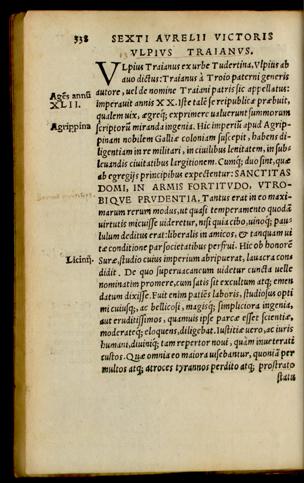 338 SEXTI AVRELII VICTORIS
VLPIVS TRAIANVS.
VLpius Traianus ex urbe Tudertina, Vlpius ab
auo dictus: Traianus à Troio paterni generis
Agēs annū autore, uel de nomine Traiani patris sic appellatus:
XLII. imperauit annis XX. Iste talē se reipublicæ præbuit,
qualem uix, ægreq; exprimere ualuerunt summorum
Agrippina scriptorū miranda ingenia. Hic imperiū apud Agrip-
pinam nobilem Galliæ coloniam suscepit, habens di-
ligentiam in re militari, in ciuilibus lenitatem, in sub
leuandis ciuitatibus largitionem. Cumq; duo sint, quæ
ab egregijs principibus expectentur: SANCTITAS
DOMI, IN ARMIS FORTITVDO, VTRO-
BIQVE PRVDENTIA, Tantus erat in eo maxi-
marum rerum modus, ut quasi temperamento quodā
uirtutis miscuisse uideretur, nisi quia cibo, uinoq; pau
lulum deditus erat: liberalis in amicos, & tanquam ui
tæ conditione par societatibus perfrui. Hic ob honorē
Licinij. Suræ, studio cuius imperium abripuerat, lauacra con
didit. De quo superuacaneum uidetur cuncta uelle
nominatim promere, cum satis sit excultum atq; emen
datum dixisse. Fuit enim patiēs laboris, studiosus opti
mi cuiusq;, ac bellicosi, magisq; simpliciora ingenia,
aut eruditissimos, quamuis ipse parcæ esset scientiæ,
moderateq; eloquens, diligebat. Iustitiæ uero, ac iuris
humani, diuiniq; tam repertor noui, quàm inueterati
custos. Quæ omnia eo maiora uisebantur, quoniā per
multos atq; atroces tyrannos perdito atq; prostrato
statu